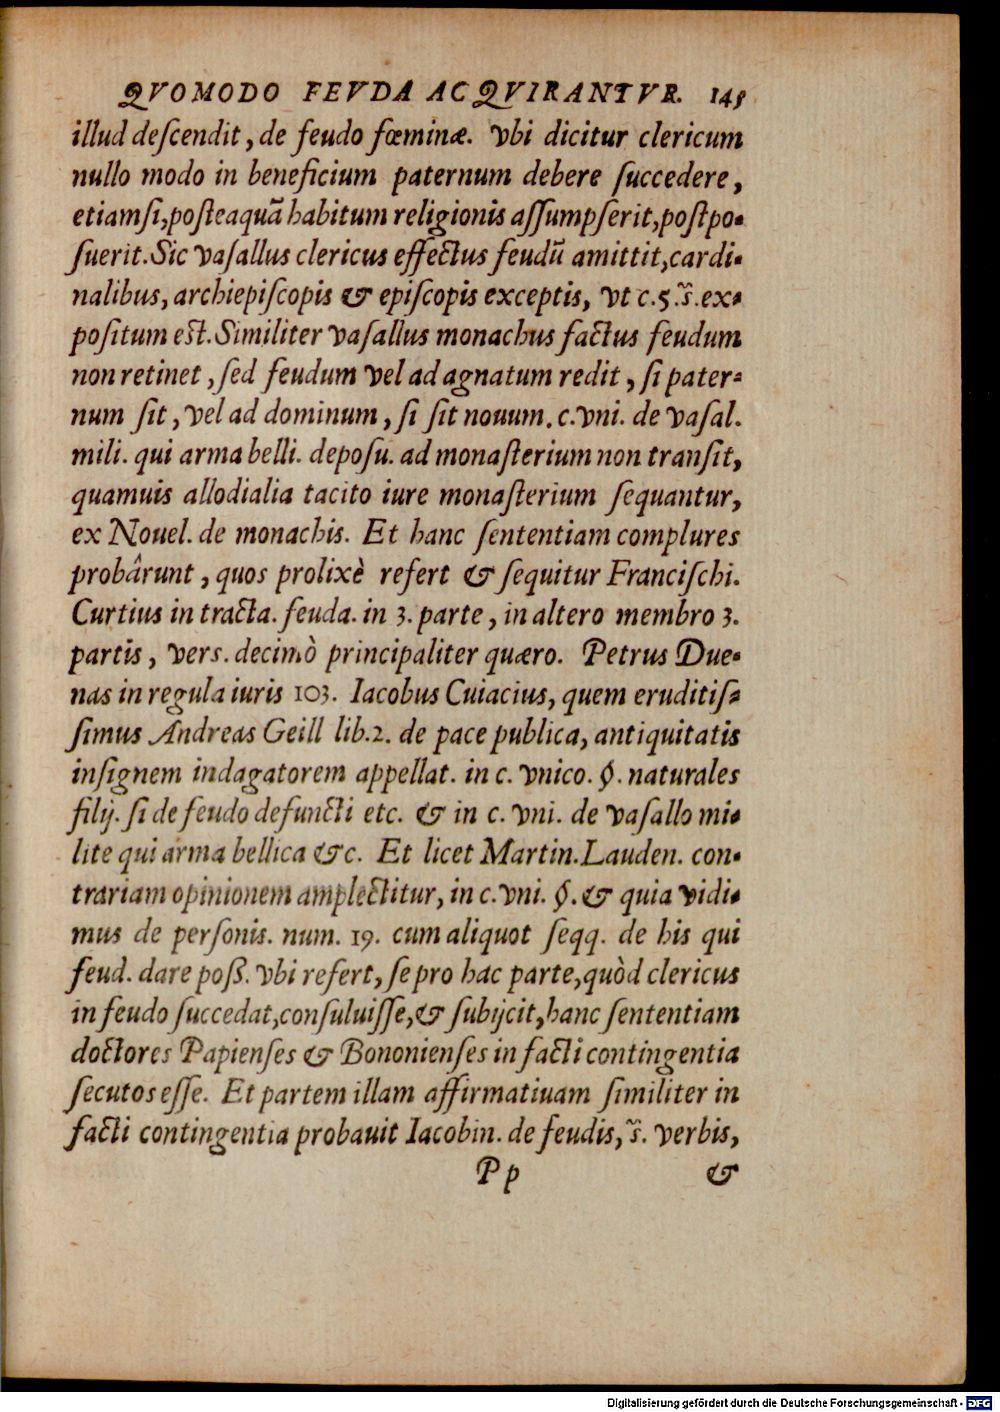 QVOMODO FEVDA ACQVIRANTVR. 145
illud deſcendit, de feudo fœminæ. Vbi dicitur clericum
nullo modo in beneficium paternum debere ſuccedere,
etiamſi, poſteaquã habitum religionis aſſumpſerit, poſtpo-
ſuerit. Sic vaſallus clericus effectus feudũ amittit, cardi-
nalibus, archiepiſcopis & epiſcopis exceptis, vt c. 5. s̃. ex-
poſitum eſt. Similiter vaſallus monachus factus feudum
non retinet, ſed feudum vel ad agnatum redit, ſi pater-
num ſit, vel ad dominum, ſi ſit nouum. c. vni. de vaſal.
mili. qui arma belli. depoſu. ad monaſterium non tranſit,
quamuis allodialia tacito iure monaſterium ſequantur,
ex Nouel. de monachis. Et hanc ſententiam complures
probârunt, quos prolixè refert & ſequitur Franciſchi.
Curtius in tracta. feuda. in 3. parte, in altero membro 3.
partis, verſ. decimò principaliter quæro. Petrus Due-
nas in regula iuris 103. Iacobus Cuiacius, quem eruditiſ-
ſimus Andreas Geill lib. 2. de pace publica, antiquitatis
inſignem indagatorem appellat. in c. vnico. §. naturales
filij. ſi de feudo defuncti etc. & in c. vni. de vaſallo mi-
lite qui arma bellica &c. Et licet Martin. Lauden. con-
trariam opinionem amplectitur, in c. vni. §. & quia vidi-
mus de perſonis. num. 19. cum aliquot ſeqq. de his qui
feud. dare poſſ. vbi refert, ſe pro hac parte, quòd clericus
in feudo ſuccedat, conſuluiſſe, & ſubijcit, hanc ſententiam
doctores Papienſes & Bononienſes in facti contingentia
ſecutos eſſe. Et partem illam affirmatiuam ſimiliter in
facti contingentia probauit Iacobin. de feudis, s̃. verbis,
Pp &
Digitalisierung gefördert durch die Deutsche Forschungsgemeinschaft - DFG